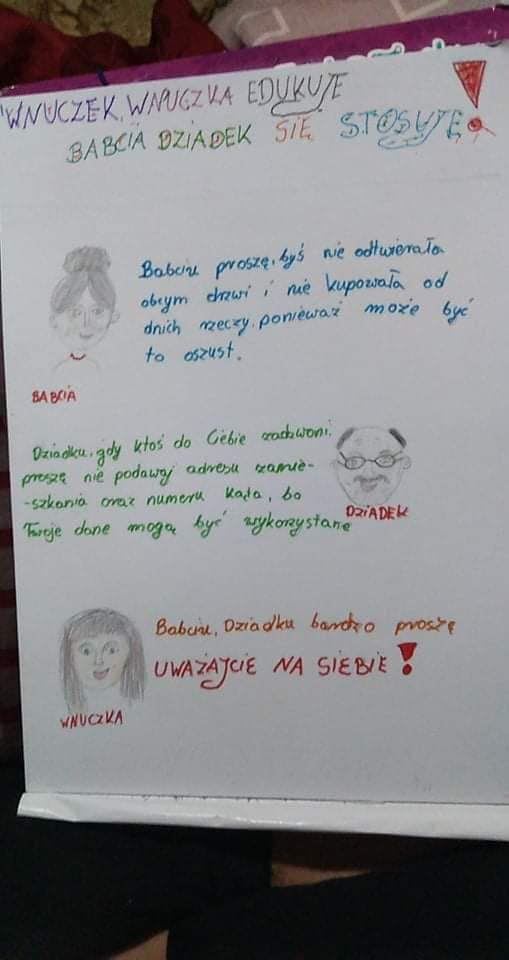 WNUCZEK, WNUCZKA EDUKUJE
BABCIA DZIADEK SIĘ STOSUJE!
Babciu proszę, byś nie odtwierała
obcym drzwi i nie kupowała od
dnich rzeczy, ponieważ może być
to oszust.
BABCIA
Dziadku, gdy ktoś do Ciebie zadzwoni,
proszę nie podawaj adresu zamie-
-szkania oraz numeru kąta, bo
Twoje dane mogą być wykorzystane
DZIADEK
Babciu, Dziadku bardzo proszę
UWAŻAJCIE NA SIEBIE!
WNUCZKA